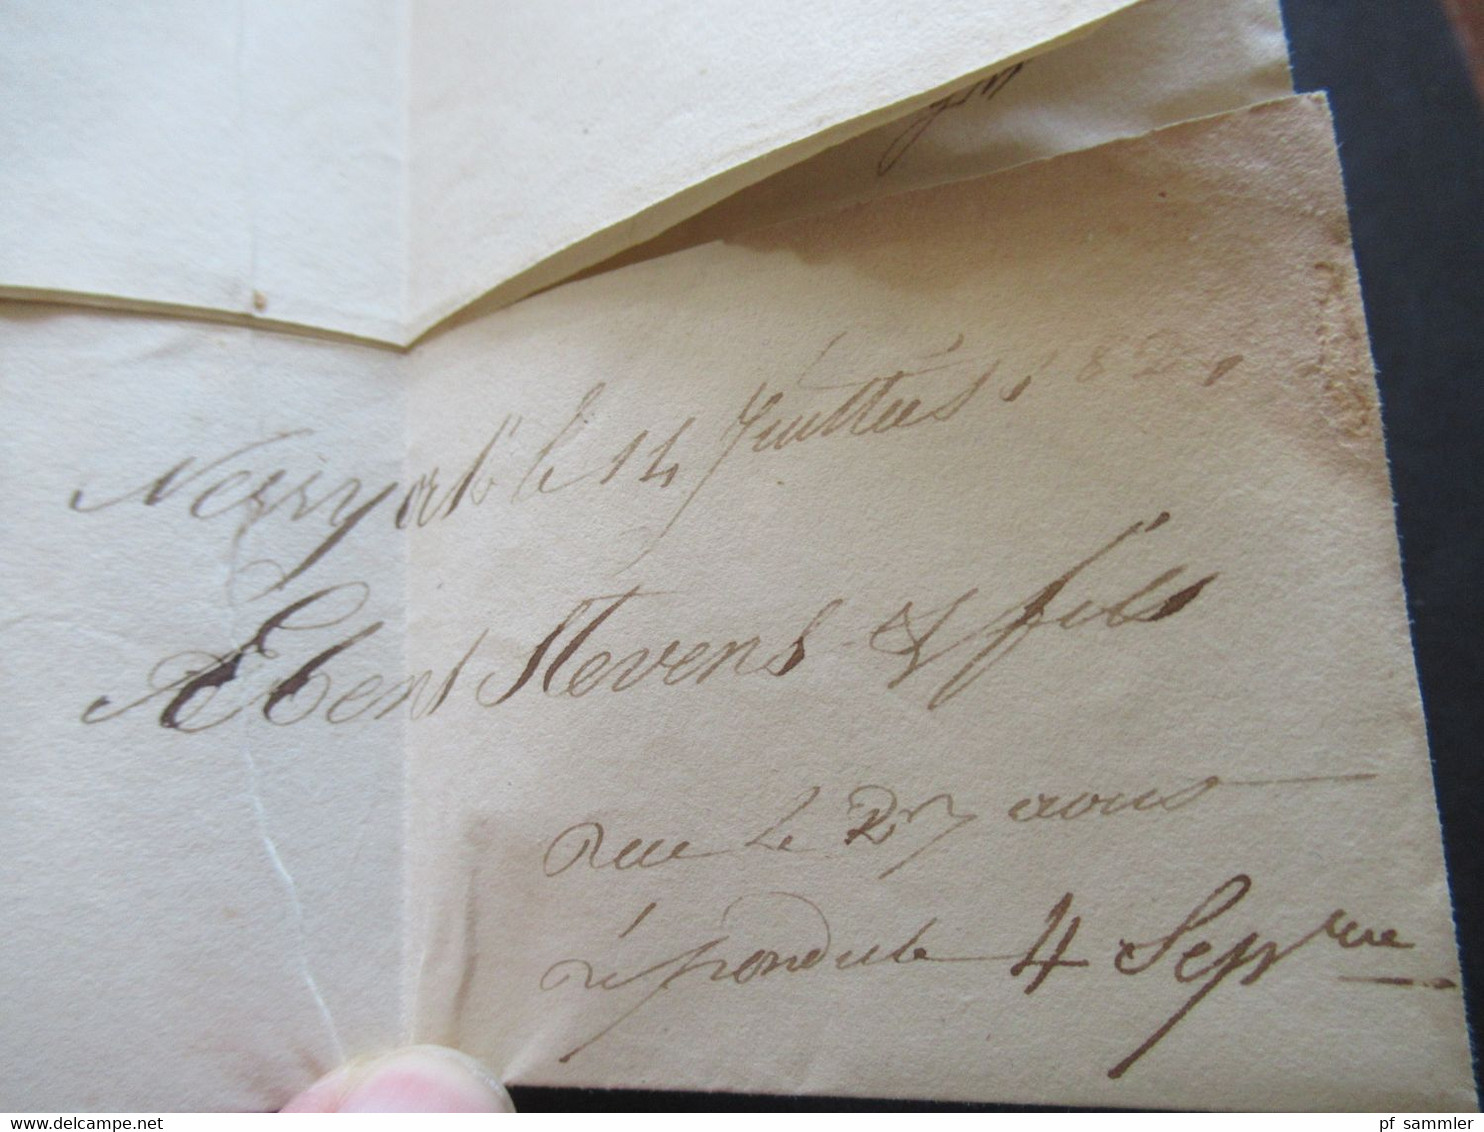 Newyork le 14 Juillet 182
Ebent Stevens & fils
reue le 27 aout
répondu le 4 Sepbre
pf_sammler